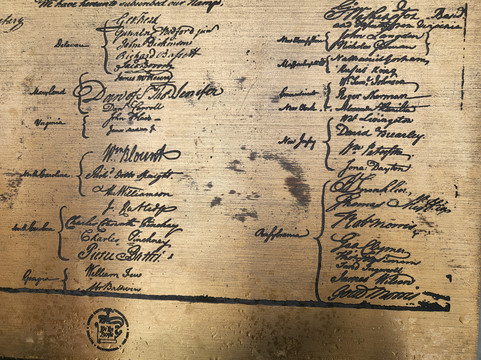 We have hereunto subscribed our Names,
Go: Washington
and deputy from Virginia
Delaware
Geo: Read
Gunning Bedford jun
John Dickinson
Richard Bassett
Jaco: Broom
Maryland
James McHenry
Dan of St Thos Jenifer
Danl Carroll
Virginia
John Blair
James Madison Jr.
North Carolina
Wm Blount
Richd Dobbs Spaight
Hu Williamson
South Carolina
J. Rutledge
Charles Cotesworth Pinckney
Charles Pinckney
Pierce Butler
Georgia
William Few
Abr Baldwin
New Hampshire
John Langdon
Nicholas Gilman
Massachusetts
Nathaniel Gorham
Rufus King
Connecticut
Wm Saml Johnson
Roger Sherman
New York
Alexander Hamilton
New Jersey
Wil Livingston
David Brearley
Wm Paterson
Jona: Dayton
Pensylvania
B Franklin
Thomas Mifflin
Robt Morris
Geo. Clymer
Thos FitzSimons
Jared Ingersoll
James Wilson
Gouv Morris